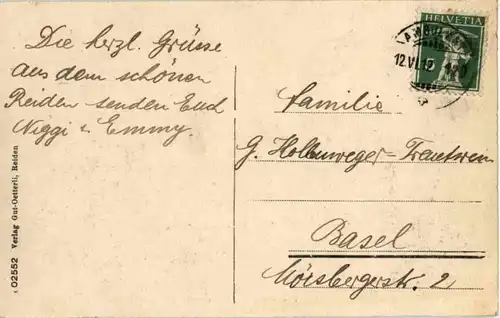 Die herzl. Grüsse
aus dem schönen
Reiden senden Euch
Niggi & Emmy.
HELVETIA
12.VI.
Familie
G. Hollenweger-Trautwein
Basel
Mörsbergerstr. 2
02552 Verlag Gut-Oetterli, Reiden